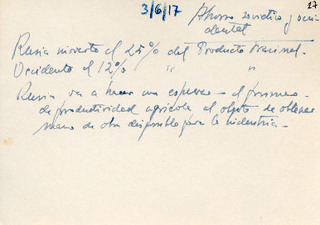 3/6/17
27
Ahorro soviético y occi
dental
Rusia invierte el 25% del Producto Nacional.
Occidente el 12% " "
Rusia va a hacer un esfuerzo – el primero –
de productividad agrícola al objeto de obtener
mano de obra disponible para la industria –